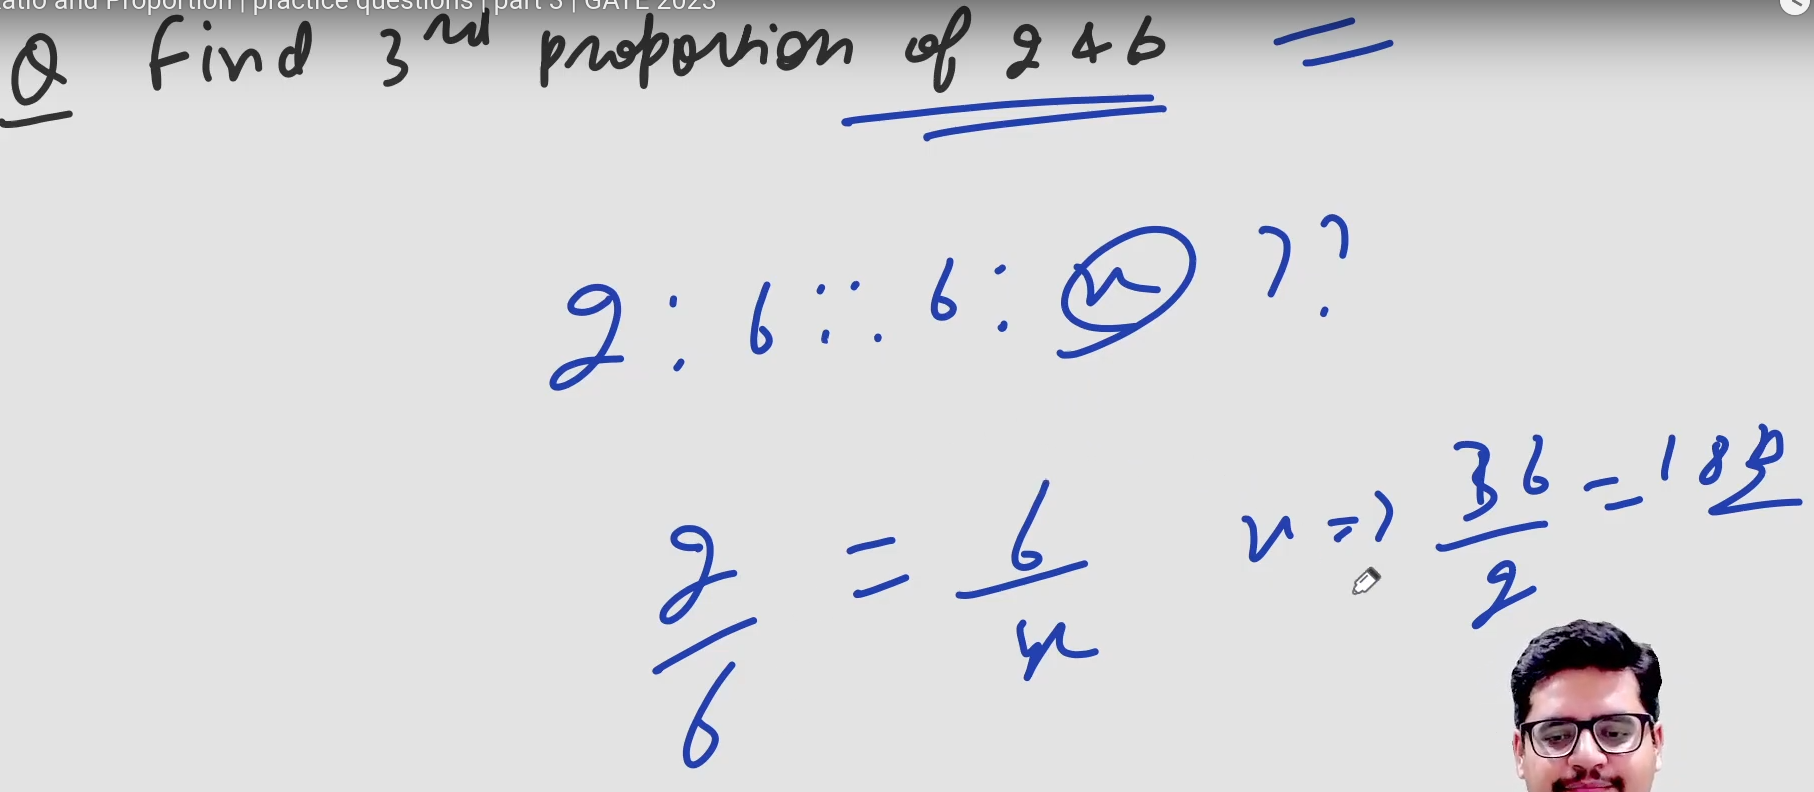 atio and Proportion | practice questions | part 3 | GATE 2023
Q Find 3rd proportion of 2 & 6 =
2 : 6 :: 6 : x ??
2/6 = 6/x
x => 36/2 = 18